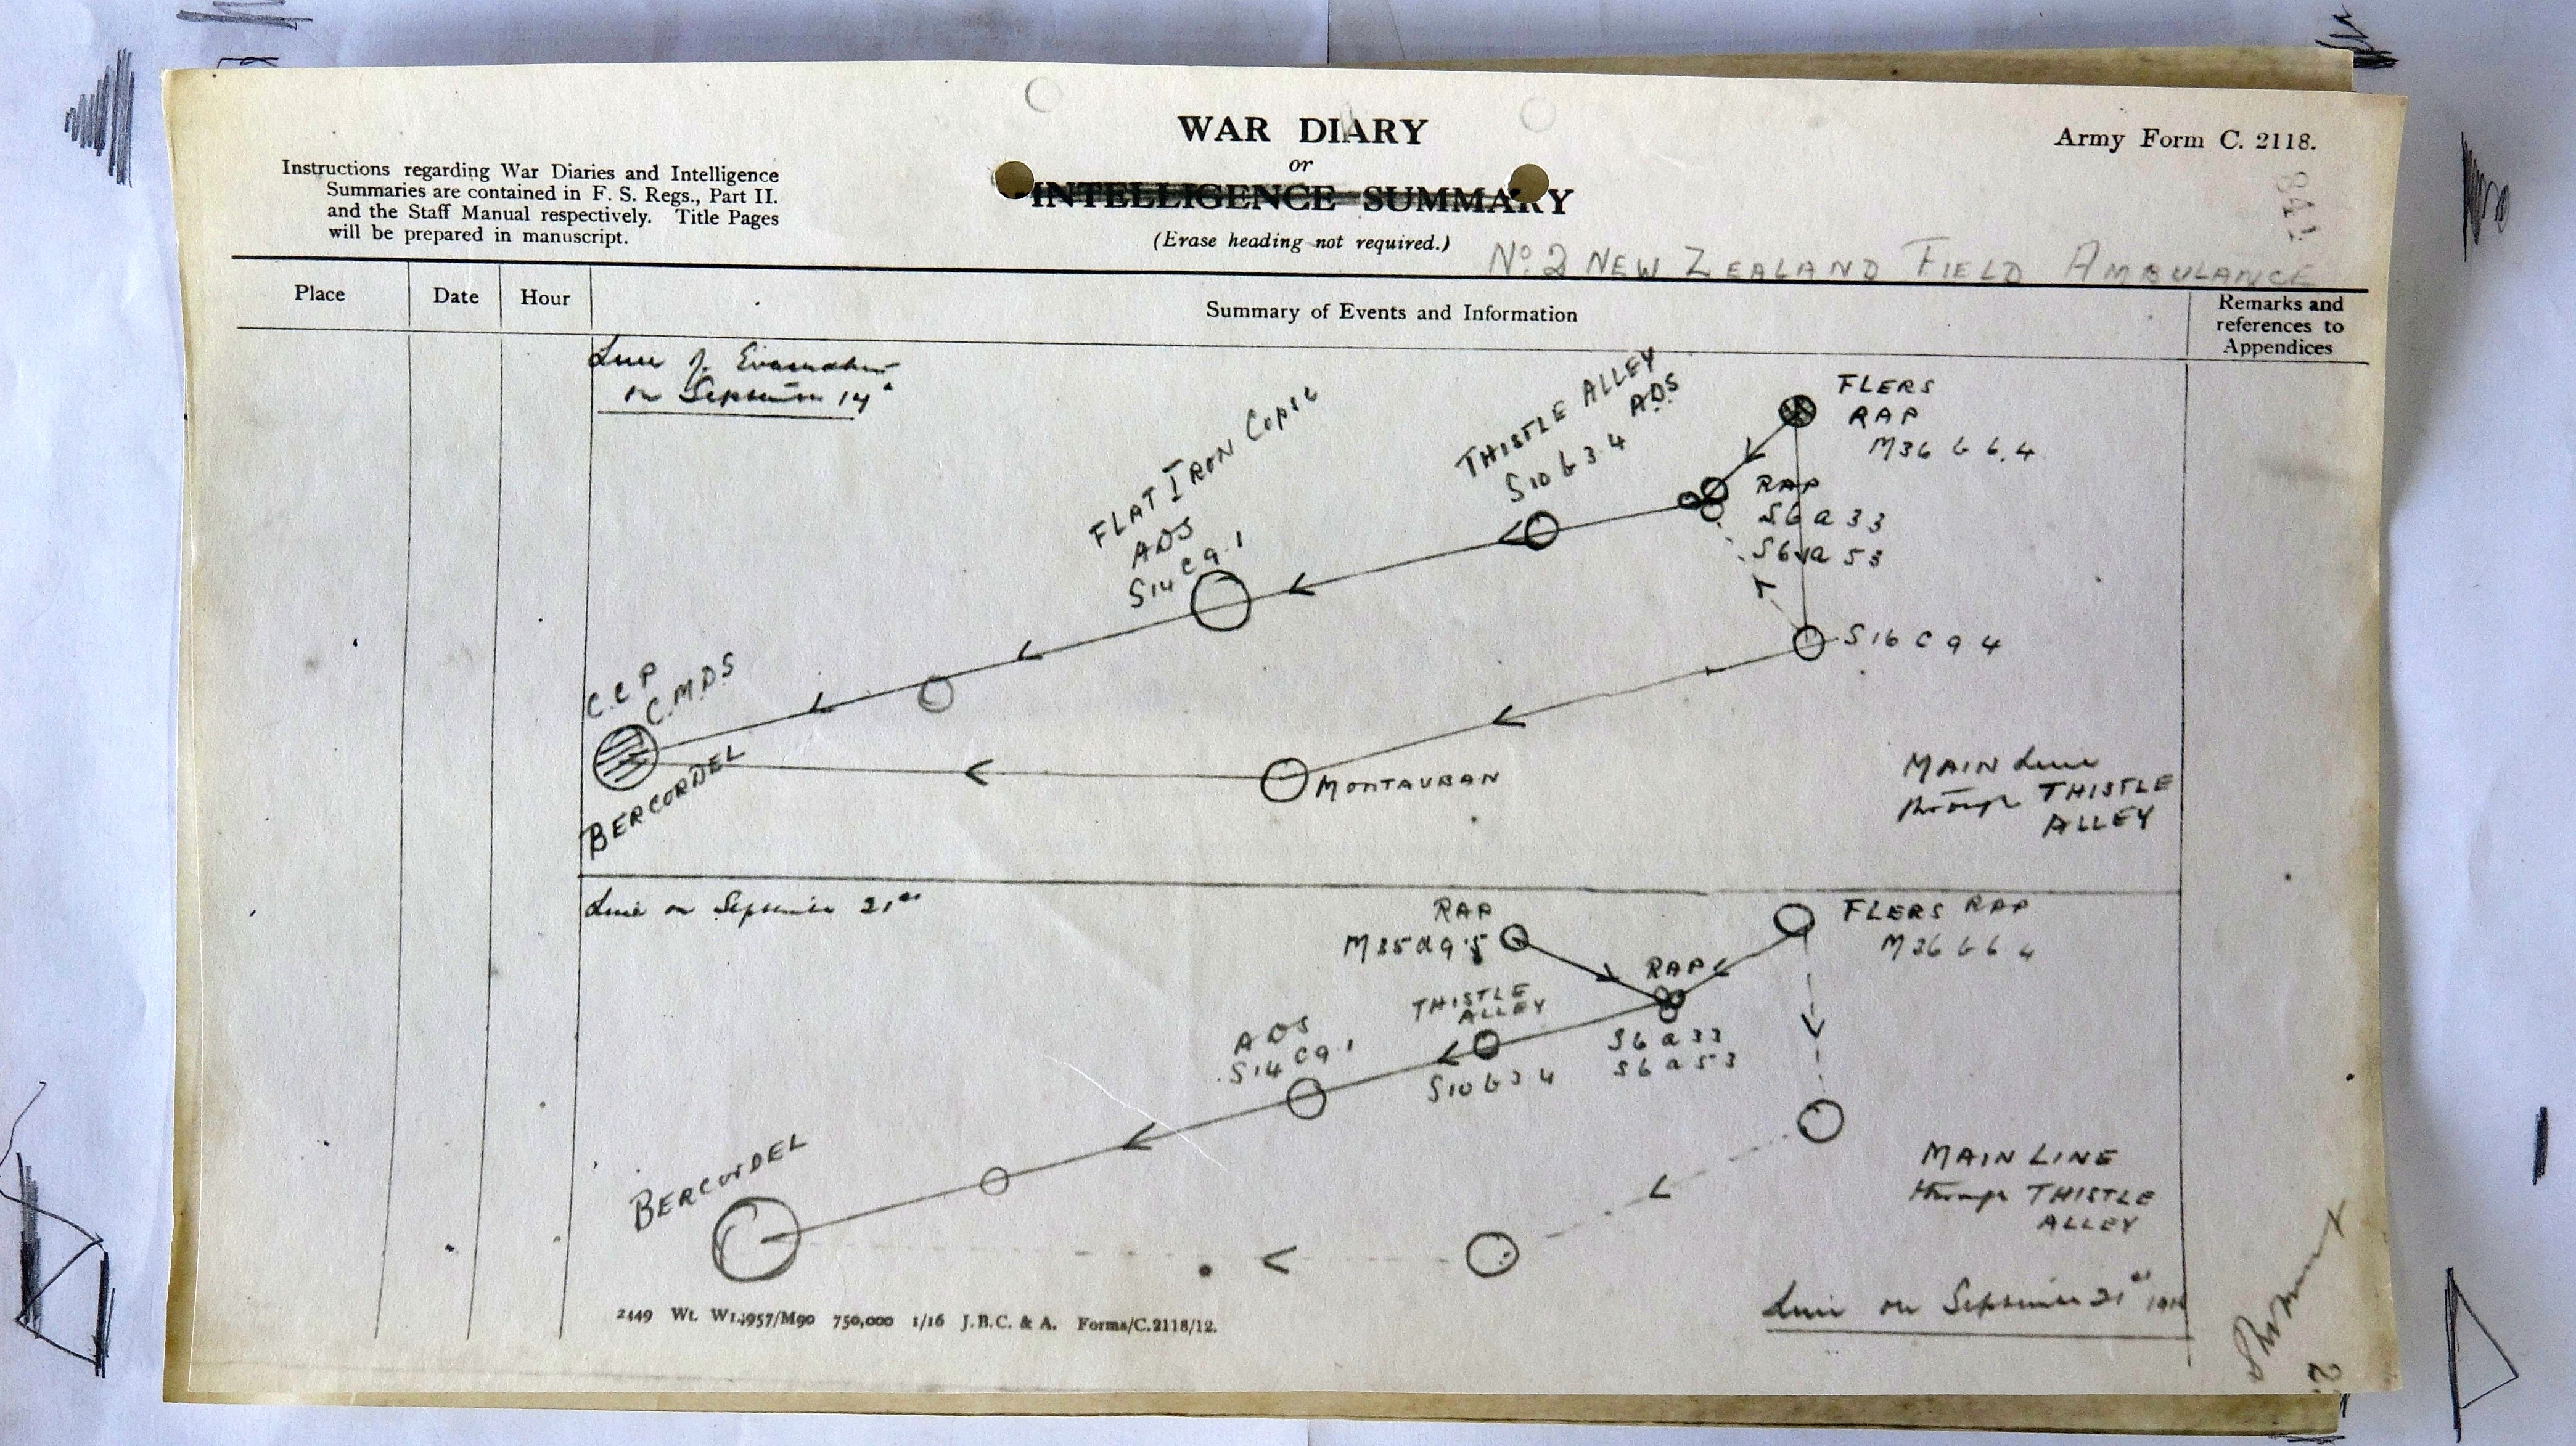 WAR DIARY
or
INTELLIGENCE SUMMARY
(Erase heading not required.)
Army Form C. 2118.
Instructions regarding War Diaries and Intelligence
Summaries are contained in F. S. Regs., Part II.
and the Staff Manual respectively. Title Pages
will be prepared in manuscript.
841
No. 2 NEW ZEALAND FIELD AMBULANCE
Place
Date
Hour
Summary of Events and Information
Remarks and
references to
Appendices
Line of Evacuation
on September
FLAT IRON Copse
ADS
S14 C 9.1
THISTLE ALLEY
ADS
S10 b 3 4
FLERS
RAP
M36 b 6.4
RAP
S6 a 33
S6 a 53
S16 C 9 4
C.C.P
C.M.D.S
BERCORDEL
MONTAUBAN
MAIN Line
through THISTLE
ALLEY
Line on September 21st
RAP
M35 d 9.5
FLERS RAP
M36 b 6 4
RAP
THISTLE
ALLEY
S10 b 3 4
S6 a 33
S6 a 53
ADS
S14 C 9 1
BERCORDEL
MAIN LINE
through THISTLE
ALLEY
Line on September 21st 1916
2449 Wt. W14957/M90 750,000 1/16 J.B.C. & A. Forms/C.2118/12.